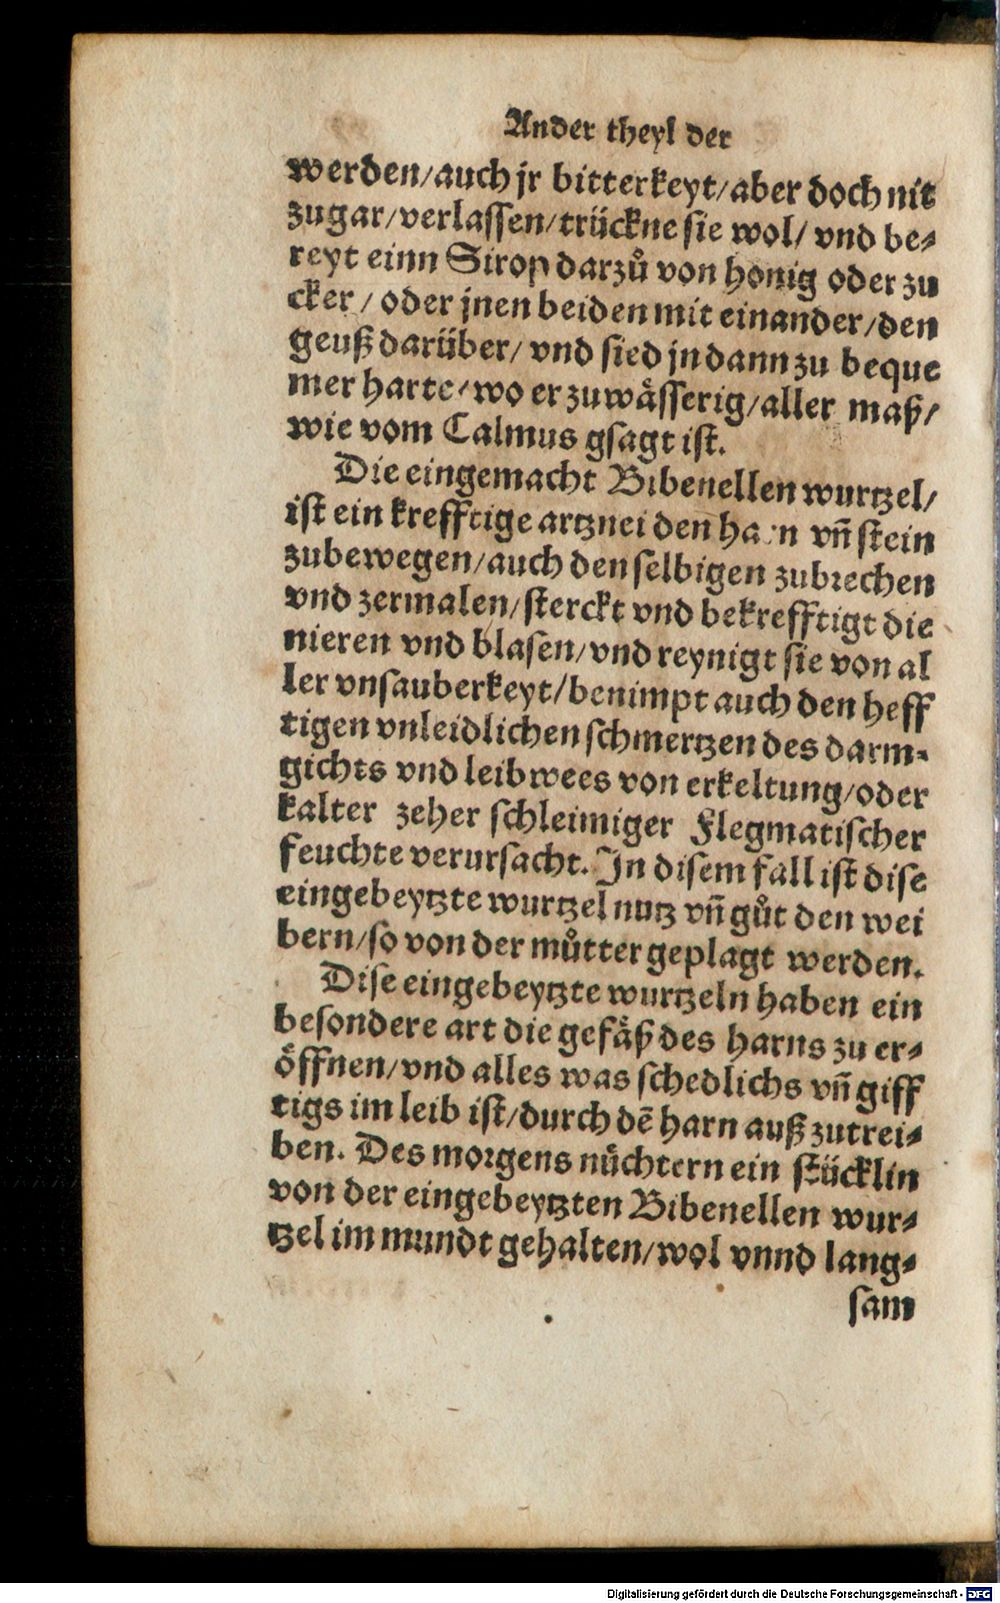 Ander theyl der
werden/auch jr bitterkeyt/aber doch nit
zugar/verlassen/trückne sie wol/ vnd be⸗
reyt einn Sirop darzů von honig oder zu
cker / oder jnen beiden mit einander/den
geuß darüber/ vnd sied jn dann zu beque
mer harte/wo er zuwåsserig/aller maß/
wie vom Calmus gsagt ist.
Die eingemacht Bibenellen wurtzel/
ist ein krefftige artznei den vñ stein
zubewegen/auch den selbigen zubrechen
vnd zermalen/sterckt vnd bekrefftigt die
nieren vnd blasen/vnd reynigt sie von al
ler vnsauberkeyt/benimpt auch den heff
tigen vnleidlichen schmertzen des darm⸗
gichts vnd leibwees von erkeltung/oder
kalter zeher schleimiger Flegmatischer
feuchte verursacht. In disem fall ist dise
eingebeytzte wurtzel nutz vñ gůt den wei
bern/so von der můtter geplagt werden.
Dise eingebeytzte wurtzeln haben ein
besondere art die gefåß des harns zu er⸗
öffnen/vnd alles was schedlichs vñ giff
tigs im leib ist/durch dē harn auß zutrei⸗
ben. Des morgens nüchtern ein stücklin
von der eingebeytzten Bibenellen wur⸗
tzel im mundt gehalten/wol vnnd lang⸗
sam
Digitalisierung gefördert durch die Deutsche Forschungsgemeinschaft - DFG